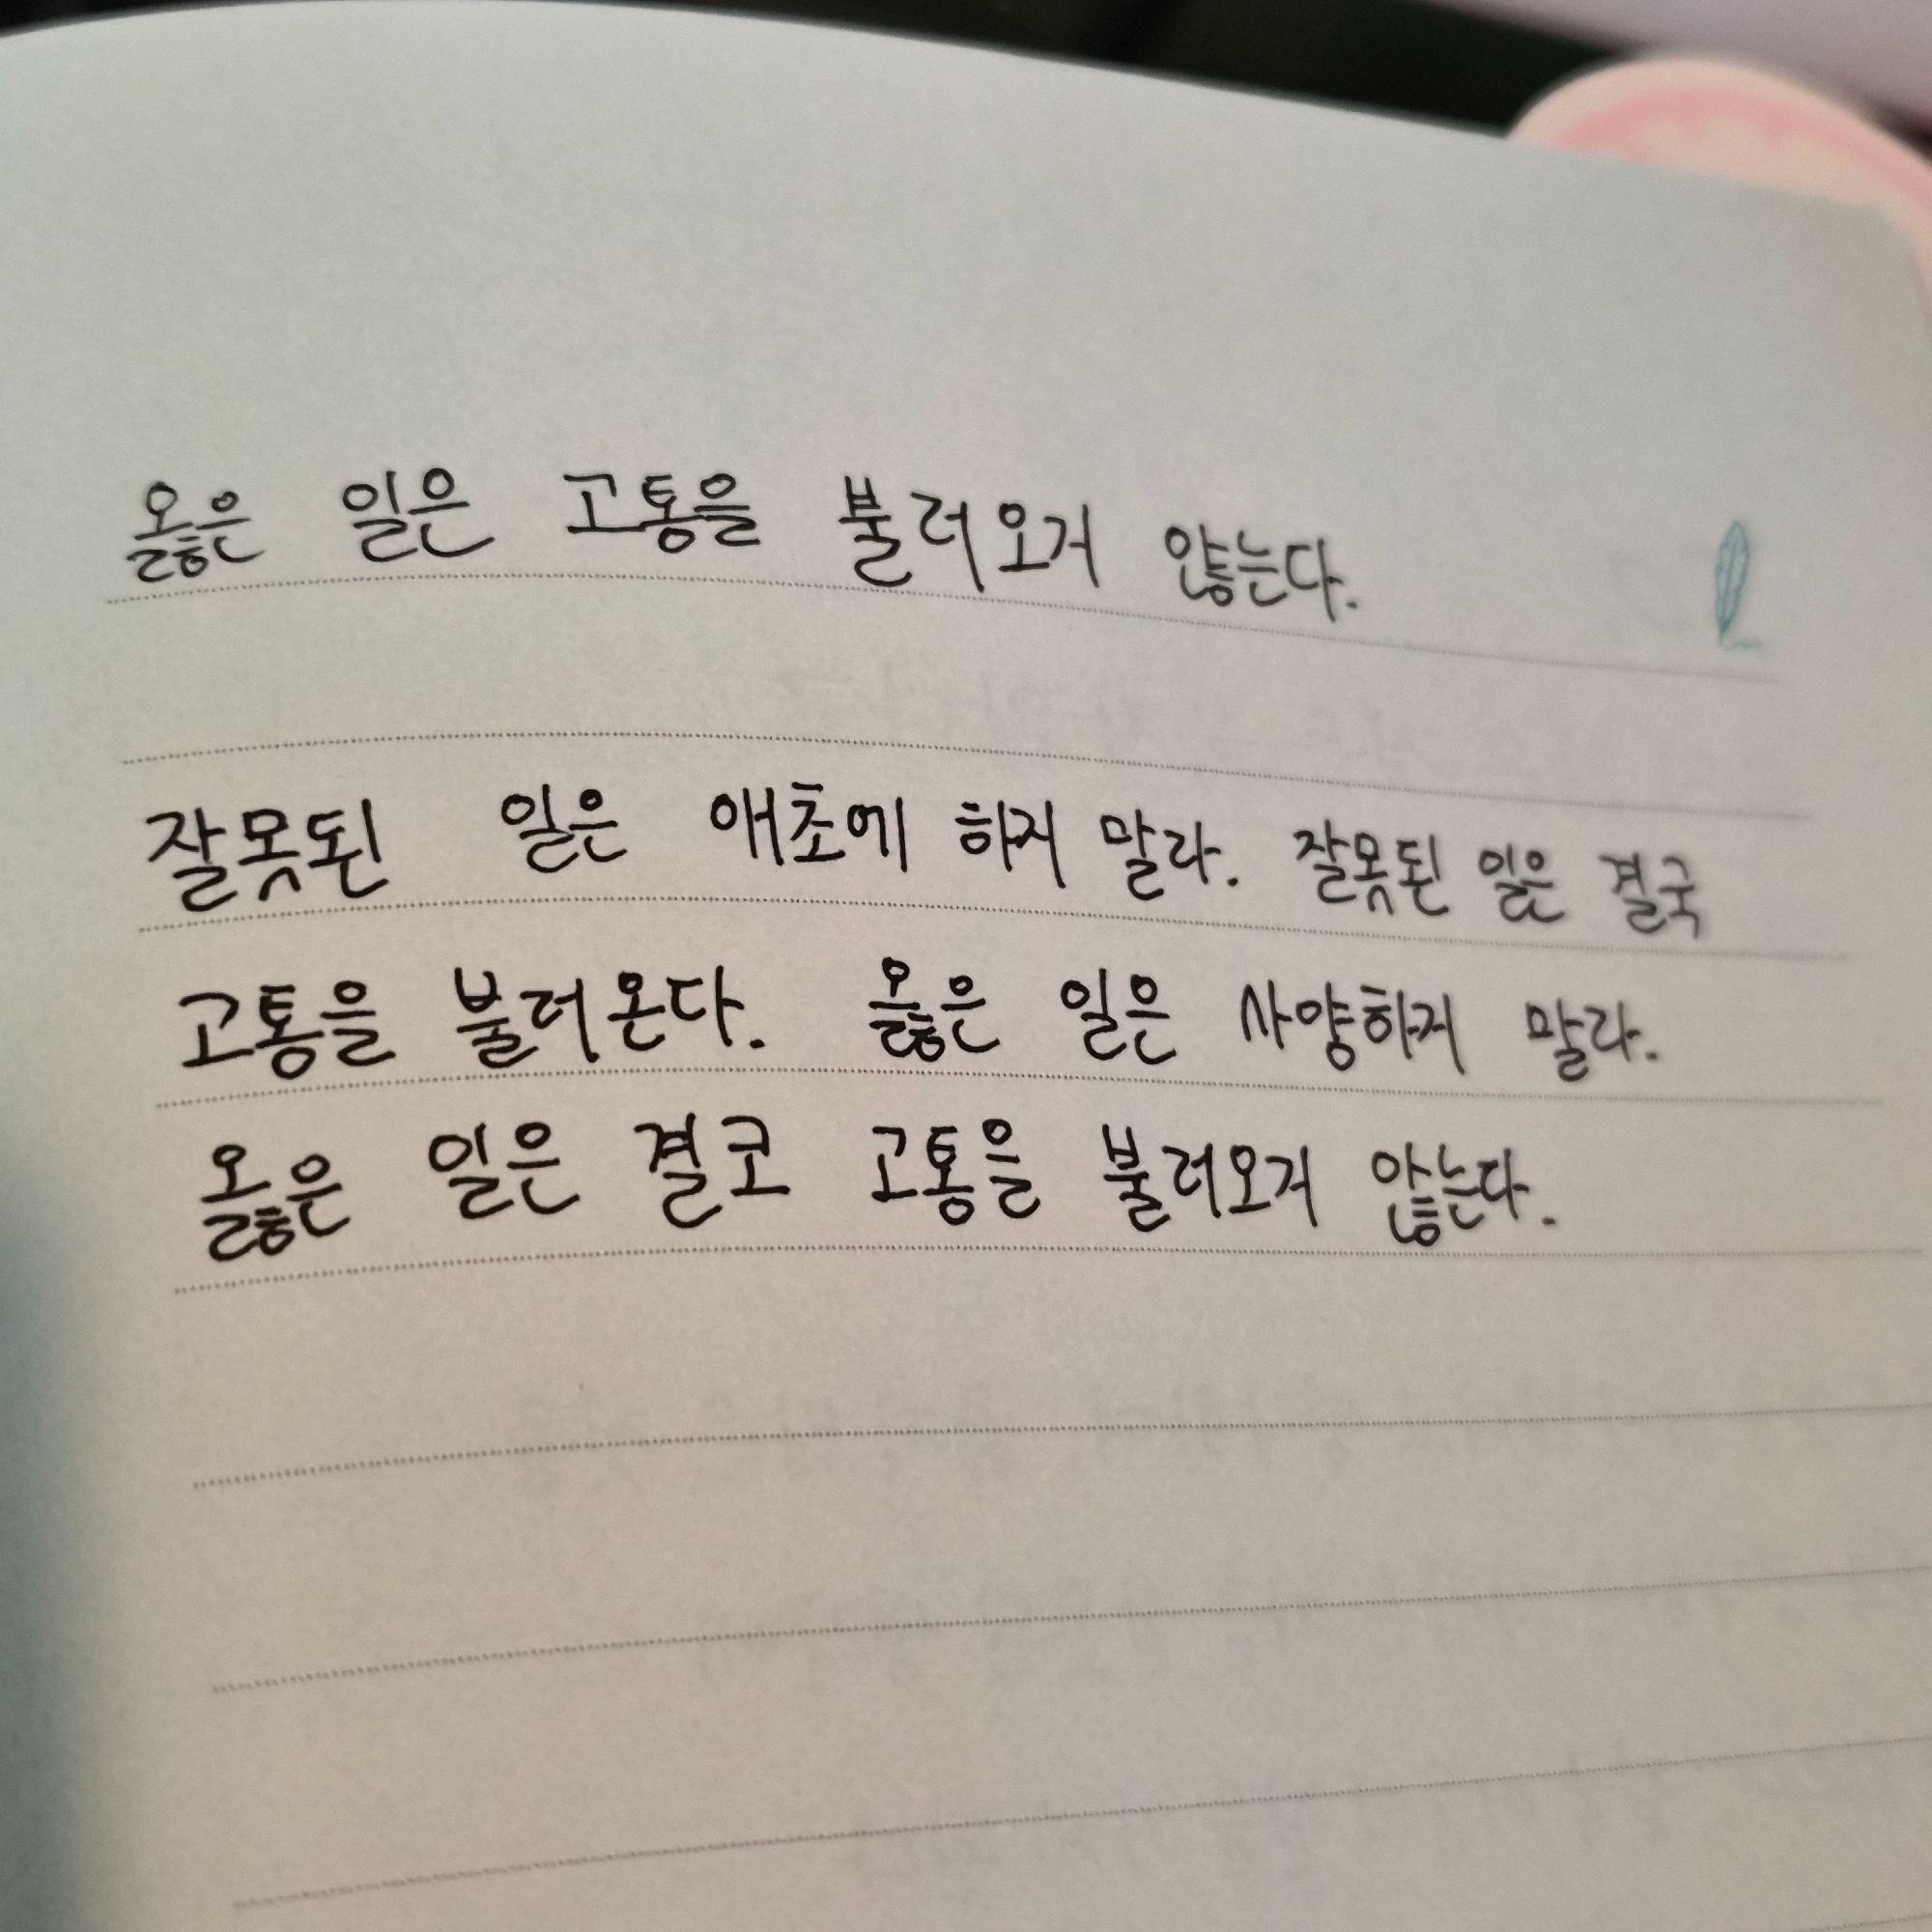 옳은 일은 고통을 불러오지 않는다.
잘못된 일은 애초에 하지 말라. 잘못된 일은 결국
고통을 불러온다. 옳은 일은 사양하지 말라.
옳은 일은 결코 고통을 불러오지 않는다.